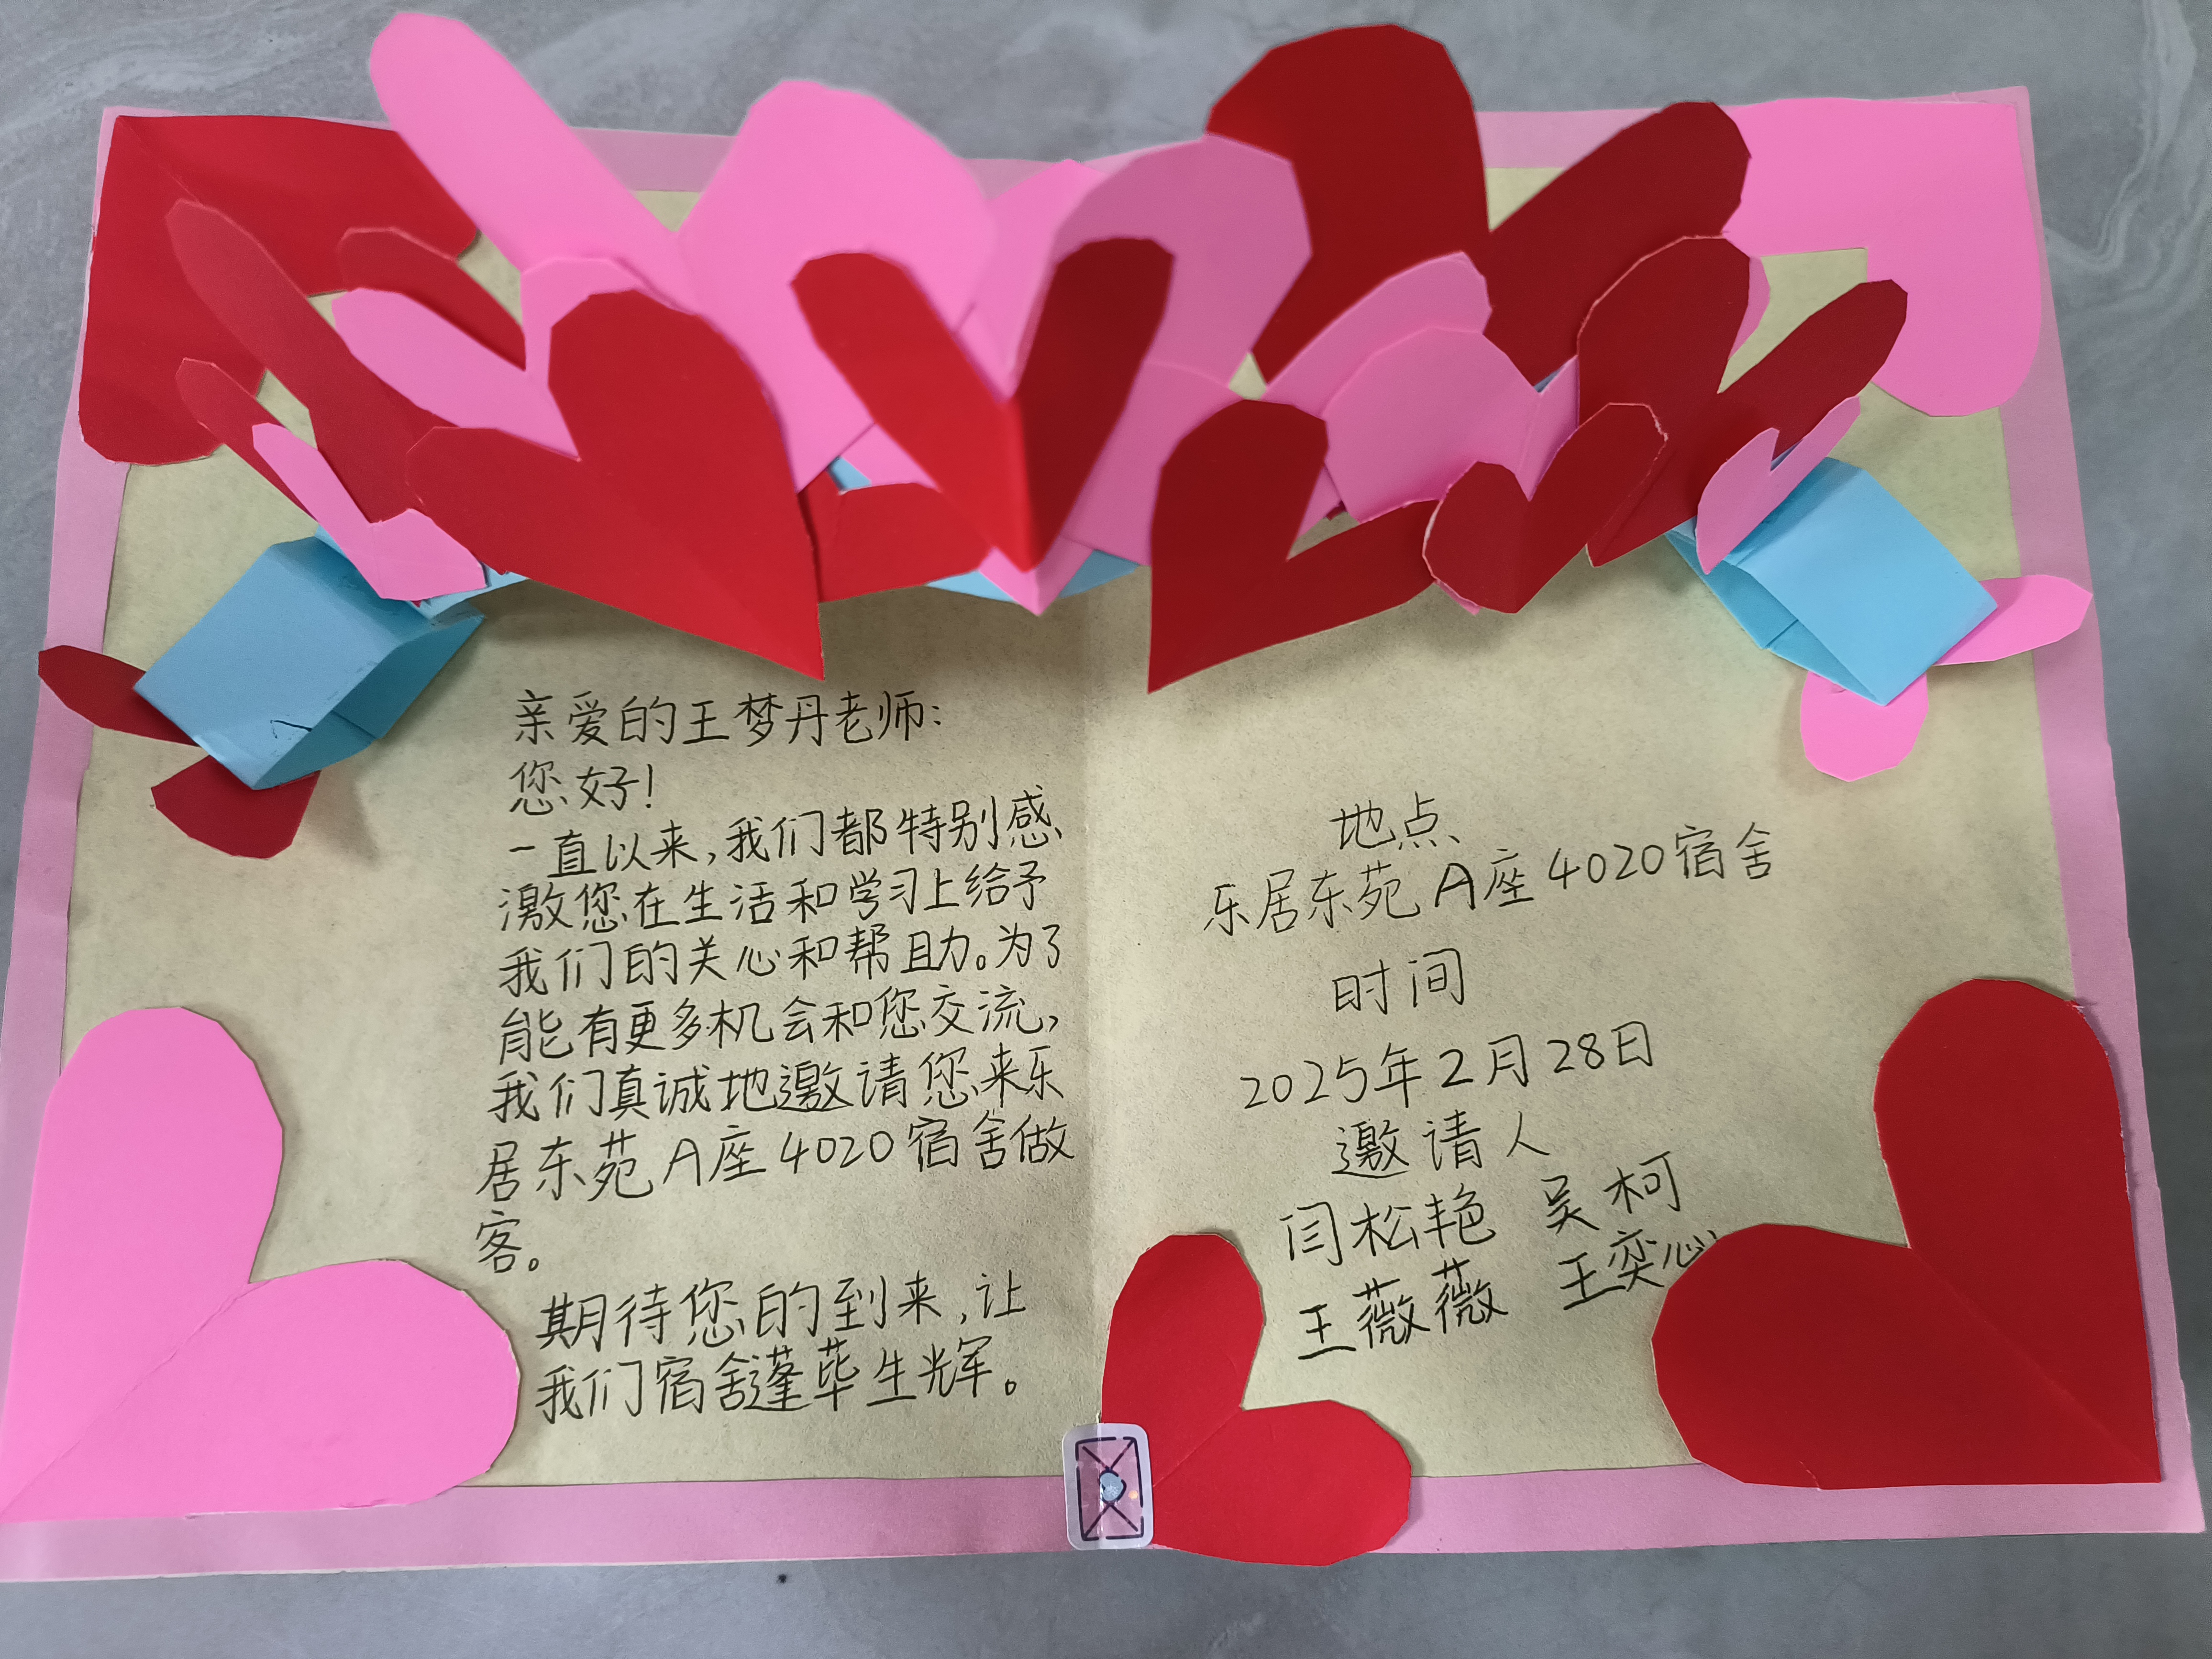 亲爱的王梦丹老师：
您好！
一直以来，我们都特别感
激您在生活和学习上给予
我们的关心和帮助。为了
能有更多机会和您交流，
我们真诚地邀请您来乐
居东苑A座4020宿舍做
客。
期待您的到来，让
我们宿舍蓬荜生辉。
地点
乐居东苑A座4020宿舍
时间
2025年2月28日
邀请人
闫松艳 吴柯
王薇薇 王奕心